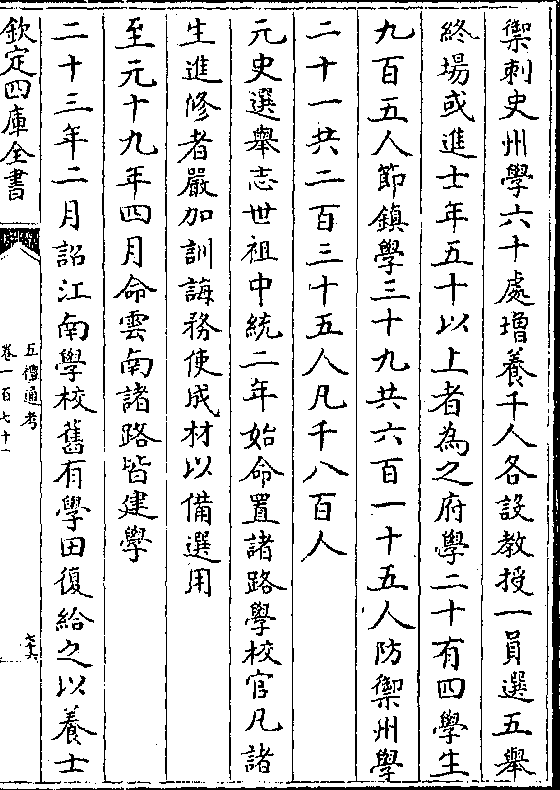 禦刺史州學六十處増養千人各設教授一員選五舉
終場或進士年五十以上者為之府學二十有四學生
九百五人節鎮學三十九共六百一十五人防禦州學
二十一共二百三十五人凡千八百人
元史選舉志世祖中統二年始命置諸路學校官凡諸
生進修者嚴加訓誨務使成材以備選用
至元十九年四月命雲南諸路皆建學
二十三年二月詔江南學校舊有學田復給之以養士
欽定四庫全書
五禮通考
卷一百七十一